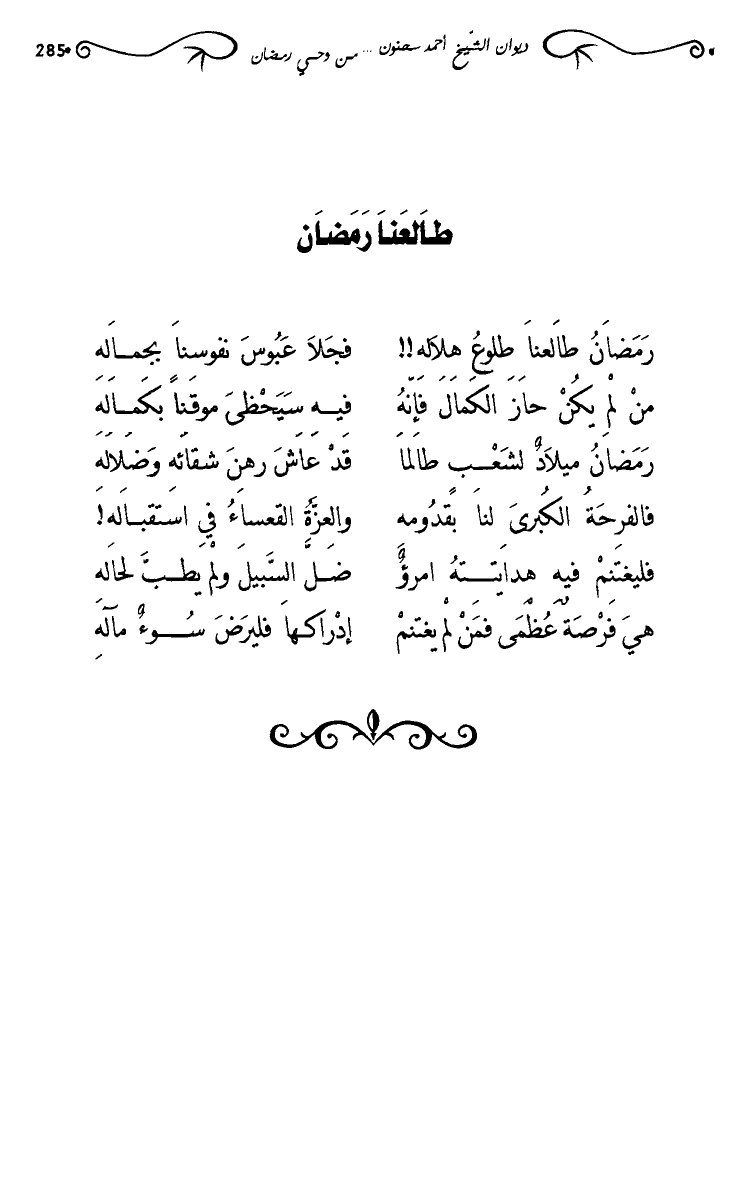 ديوان الشّيخ أحمد سحنون ... من وحي رمضان 285
طَالَعَنَا رَمَضَان
رَمَضَانُ طَالَعنَا طلوعُ هلاَله!! فجَلاَ عَبُوسَ نفوسنَا بجمـالَه
منْ لمْ يكُنْ حازَ الكَمَالَ فإنّهُ فيـه سَيَحْظىَ موقنًا بكمَـالَه
رَمَضَانُ ميلاَدٌ لشَعْـب طالمَا قدْ عاشَ رهنَ شقائه وَضلاله
فالفرحَةُ الكُبرىَ لنَا بقدُومه والعزَّةُ القعساءُ في استقبـاله!
فليغتنمْ فيه هدايتـــهُ امرؤٌ ضَـل السَّبيلَ ولمْ يطـبَّ لحاله
هيَ فرْصَةٌ عُظْمَى فمَنْ لمْ يغتنمْ إدْراكـهَا فليرَضَ سُــوءٌ مآلَه